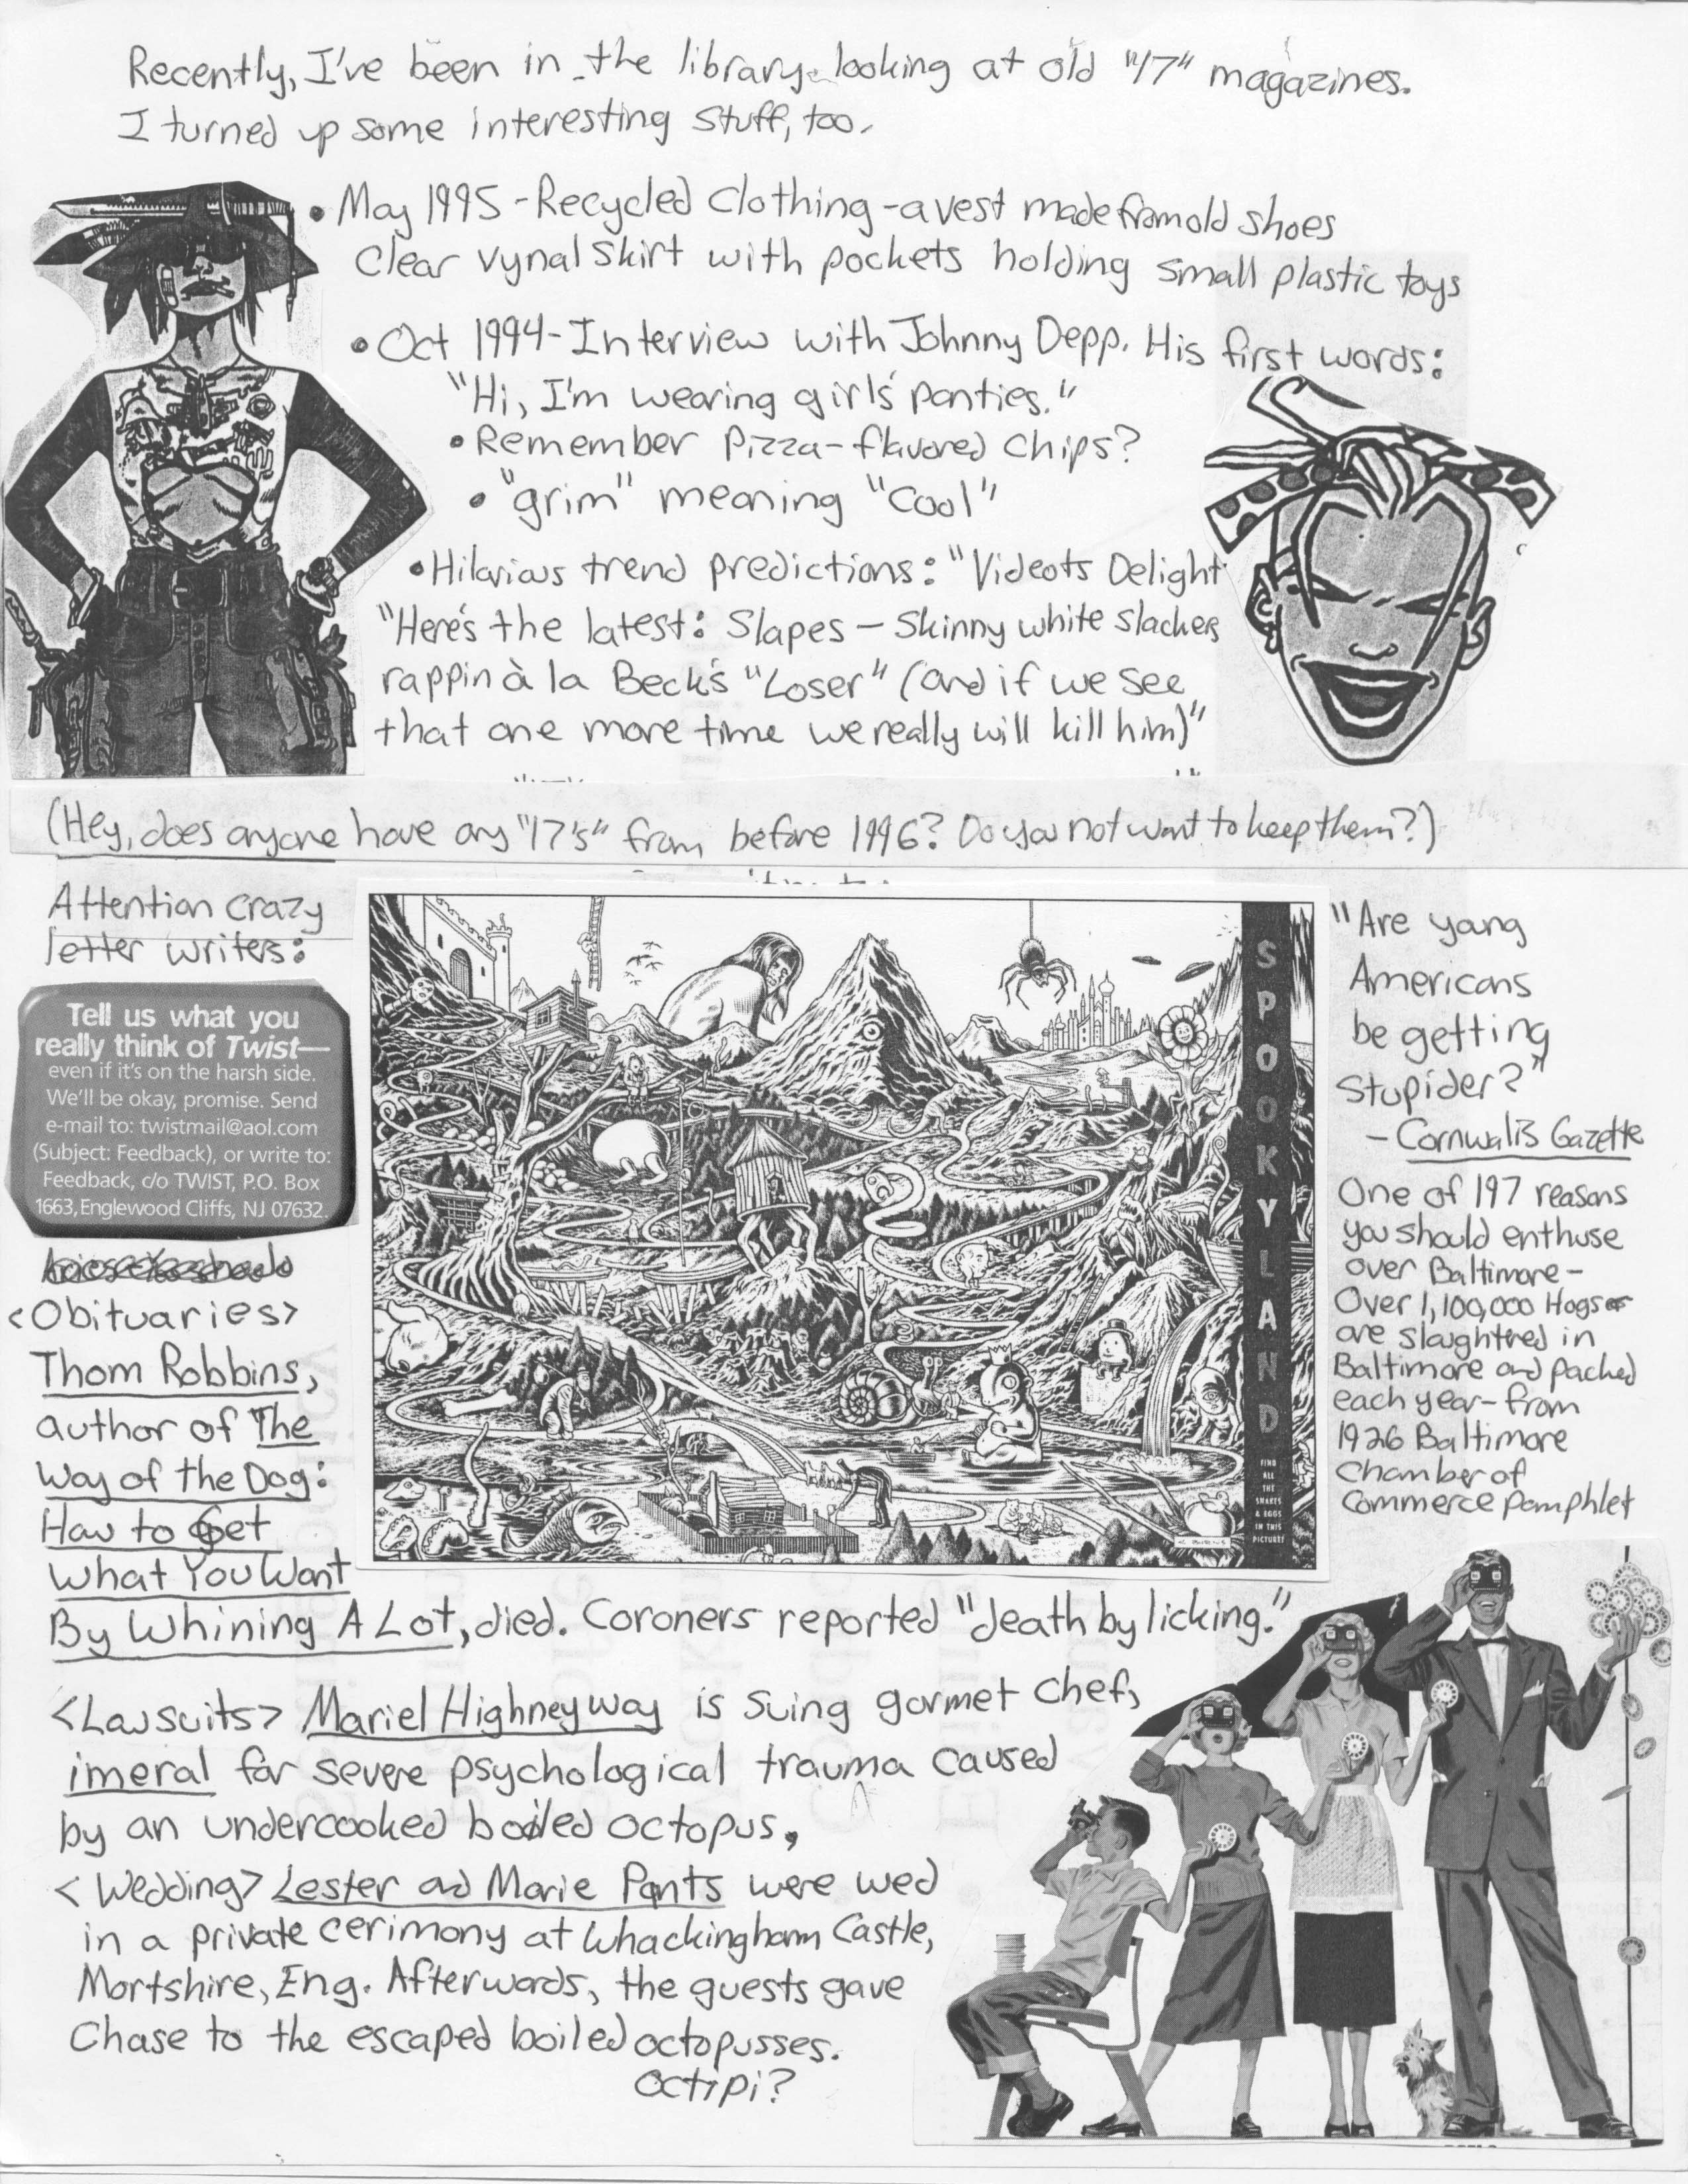 Recently, I've been in the library looking at old "17" magazines.
I turned up some interesting stuff, too.
• May 1995 - Recycled Clothing - a vest made from old shoes
Clear vynal skirt with pockets holding small plastic toys
• Oct 1994 - Interview with Johnny Depp. His first words:
"Hi, I'm wearing girl's panties."
• Remember Pizza-flavored chips?
• "grim" meaning "cool"
• Hilarious trend predictions: "Videots Delight
"Here's the latest: Slapes - Skinny white slackers
rappin à la Beck's "Loser" (and if we see
that one more time we really will kill him)"
(Hey, does anyone have any "17's" from before 1996? Do you not want to keep them?)
Attention crazy
letter writers:
Tell us what you
really think of Twist—
even if it's on the harsh side.
We'll be okay, promise. Send
e-mail to: twistmail@aol.com
(Subject: Feedback), or write to:
Feedback, c/o TWIST, P.O. Box
1663, Englewood Cliffs, NJ 07632.
<Obituaries>
Thom Robbins,
author of The
Way of the Dog:
How to Get
What You Want
By Whining A Lot, died. Coroners reported "death by licking."
SPOOKYLAND
FIND
ALL
THE
SNAKES
& EGGS
IN THIS
PICTURE!
C. BURNS
"Are yang
Americans
be getting
stupider?"
- Cornwalis Gazette
One of 197 reasons
you should enthuse
over Baltimore -
Over 1,100,000 Hogs
are slaughtred in
Baltimore and packed
each year - from
1926 Baltimore
Chamber of
Commerce Pamphlet
<Lawsuits> Mariel Highneyway is suing gormet chef,
imeral for severe psychological trauma caused
by an undercooked boiled octopus.
<Wedding> Lester and Marie Pants were wed
in a private cerimony at Whackingham Castle,
Mortshire, Eng. Afterwords, the guests gave
Chase to the escaped boiled octopusses.
Octipi?